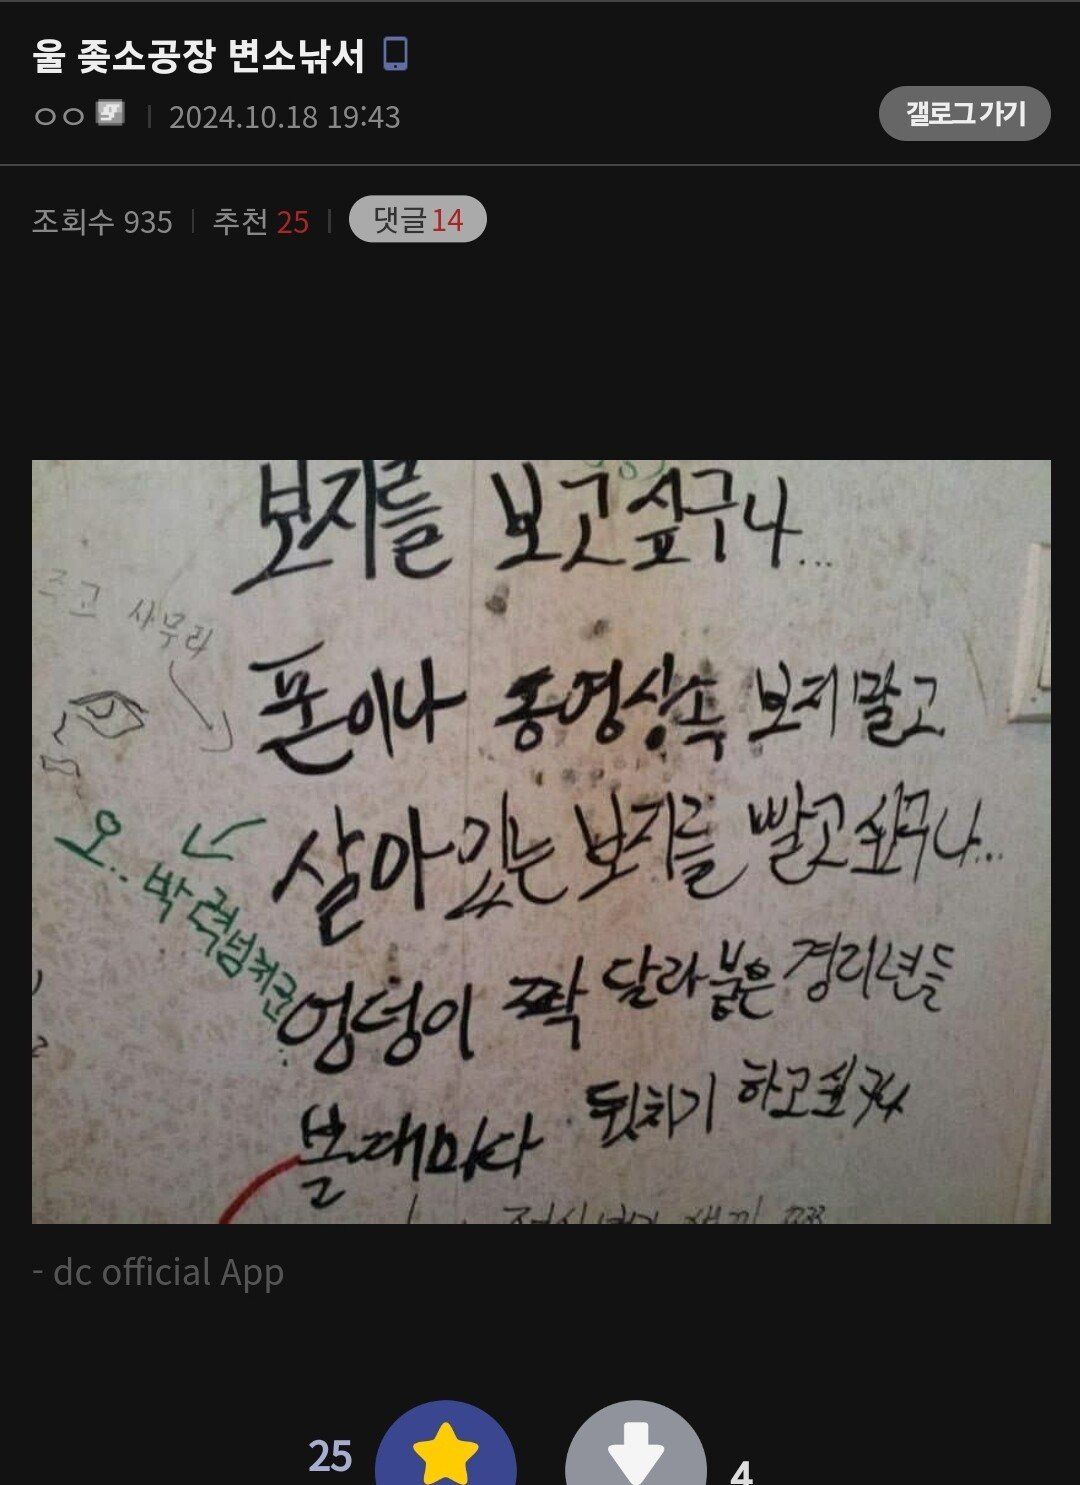 울 좆소공장 변소낚서
ㅇㅇ 2024.10.18 19:43
갤로그 가기
조회수 935 추천 25 댓글 14
보지를 보고싶구나...
사무라
폰이나 동영상속 보지말고
살아있는 보지를 빨고싶구나...
오.. 박력넘치군
엉덩이 짝 달라붙은 경리년들
볼때마다 뒷치기 하고싶구나
- dc official App
25
4